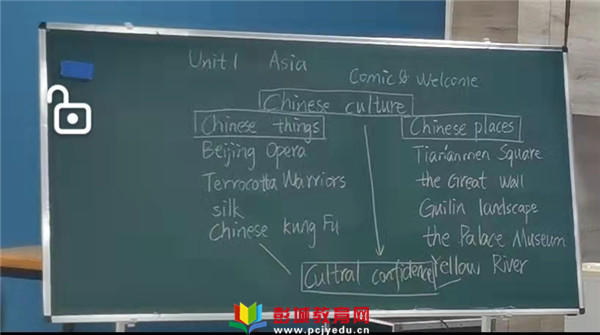 Unit 1 Asia
Comic & Welcome
Chinese culture
Chinese things
Beijing Opera
Terrocotta Warriors
silk
Chinese kung Fu
Chinese places
Tian'anmen Square
the Great Wall
Guilin landscape
the Palace Museum
Yellow River
Cultral confidence
彭城教育网
www.pcjyedu.cn